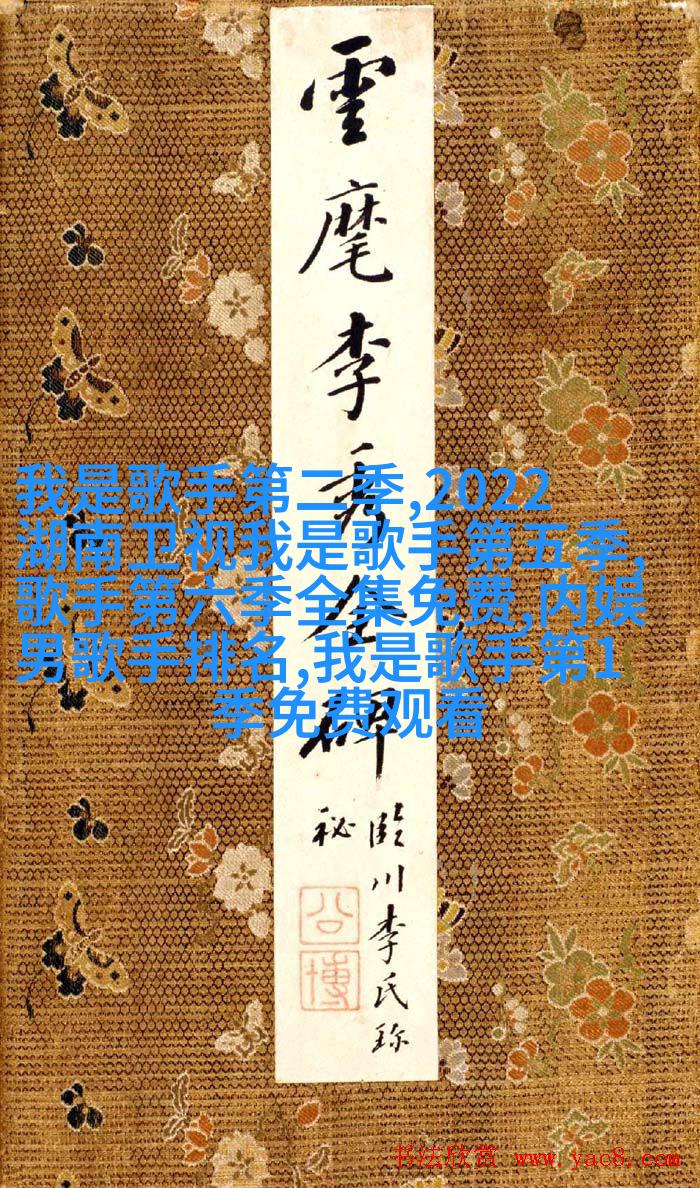 雲麾李秀全碑
臨川李氏珍
秘
公博
我是歌手第二季,2022
湖南卫视我是歌手第五季,
歌手第六季全集免费,内娱
男歌手排名,我是歌手第1
季免费观看
书法欣赏 www.yac8.com